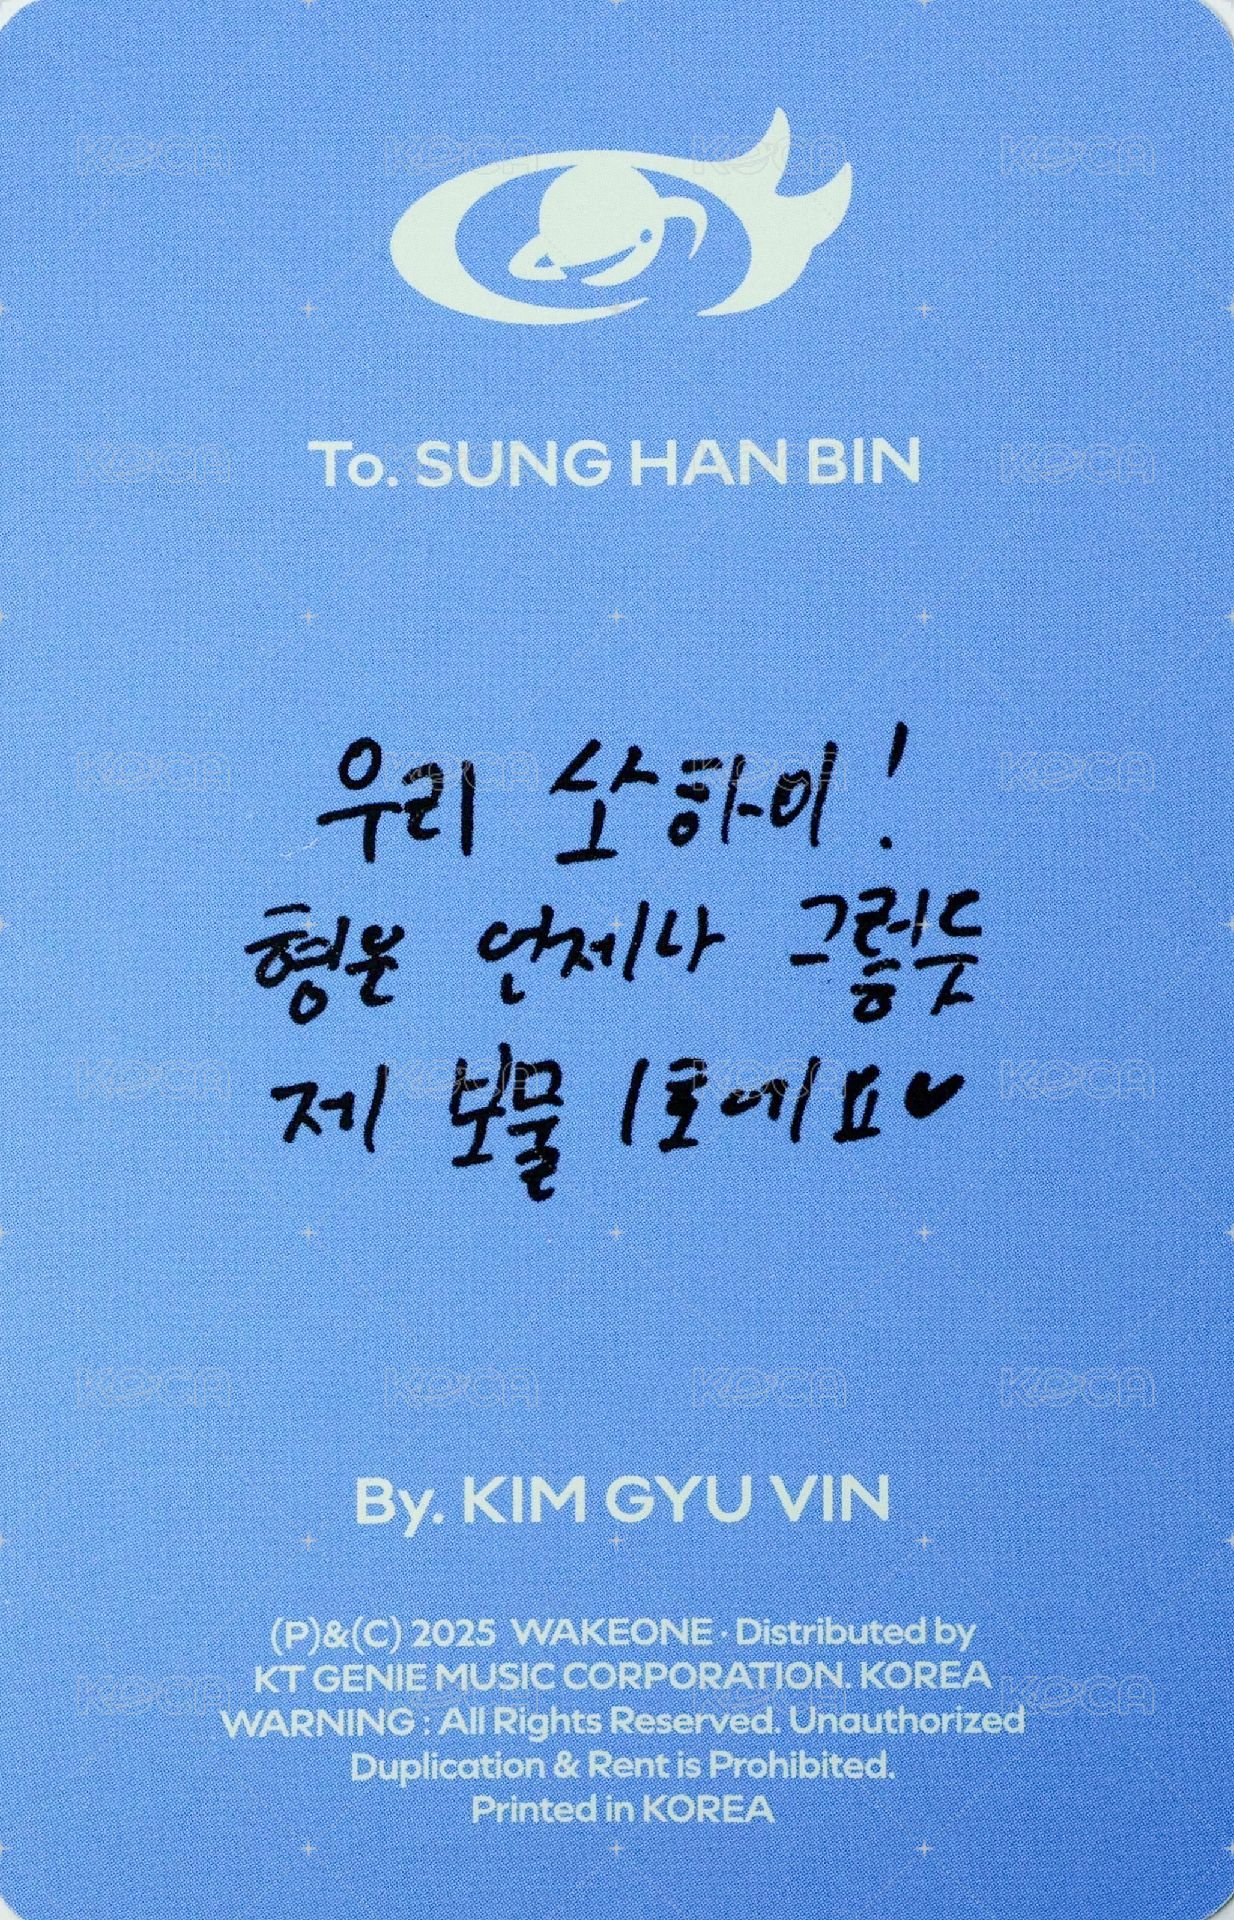 To. SUNG HAN BIN
우리 쏘하이!
형은 언제나 그렇듯
제 보물 1호에요♥
By. KIM GYU VIN
(P)&(C) 2025 WAKEONE · Distributed by
KT GENIE MUSIC CORPORATION. KOREA
WARNING : All Rights Reserved. Unauthorized
Duplication & Rent is Prohibited.
Printed in KOREA
KOCA